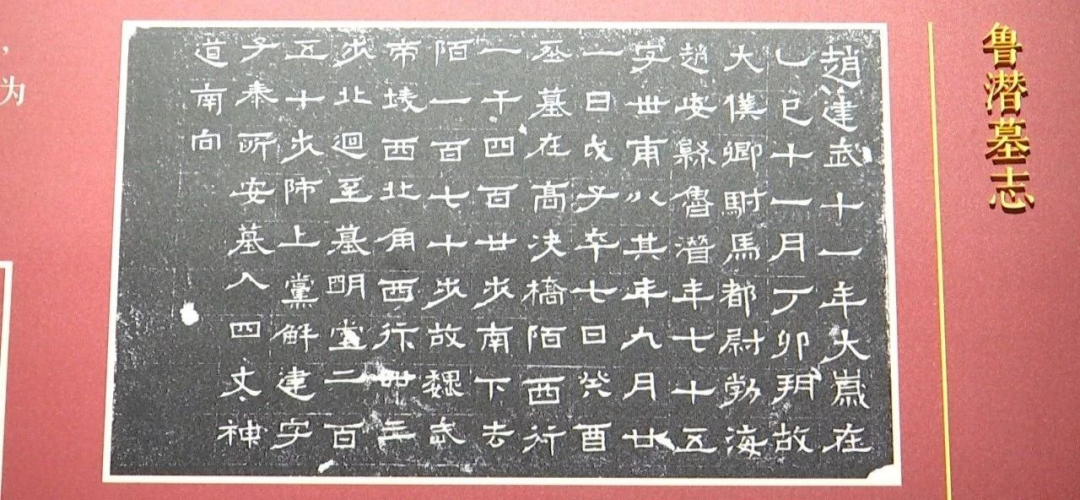 鲁潜墓志
趙建武十一年大歲在
乙巳十一月丁卯朔故
大僕卿駙馬都尉勃海
趙安縣魯潛年七十五
字世甫以其年九月廿
一日戊子卒七日癸酉
葬墓在高決橋陌西行
一千四百廿步南下去
陌一百七十步故魏武
帝陵西北角西行卌三
步北迴至墓明堂二百
五十步師上黨解建字
子泰所安墓入四丈神
道南向
，
为